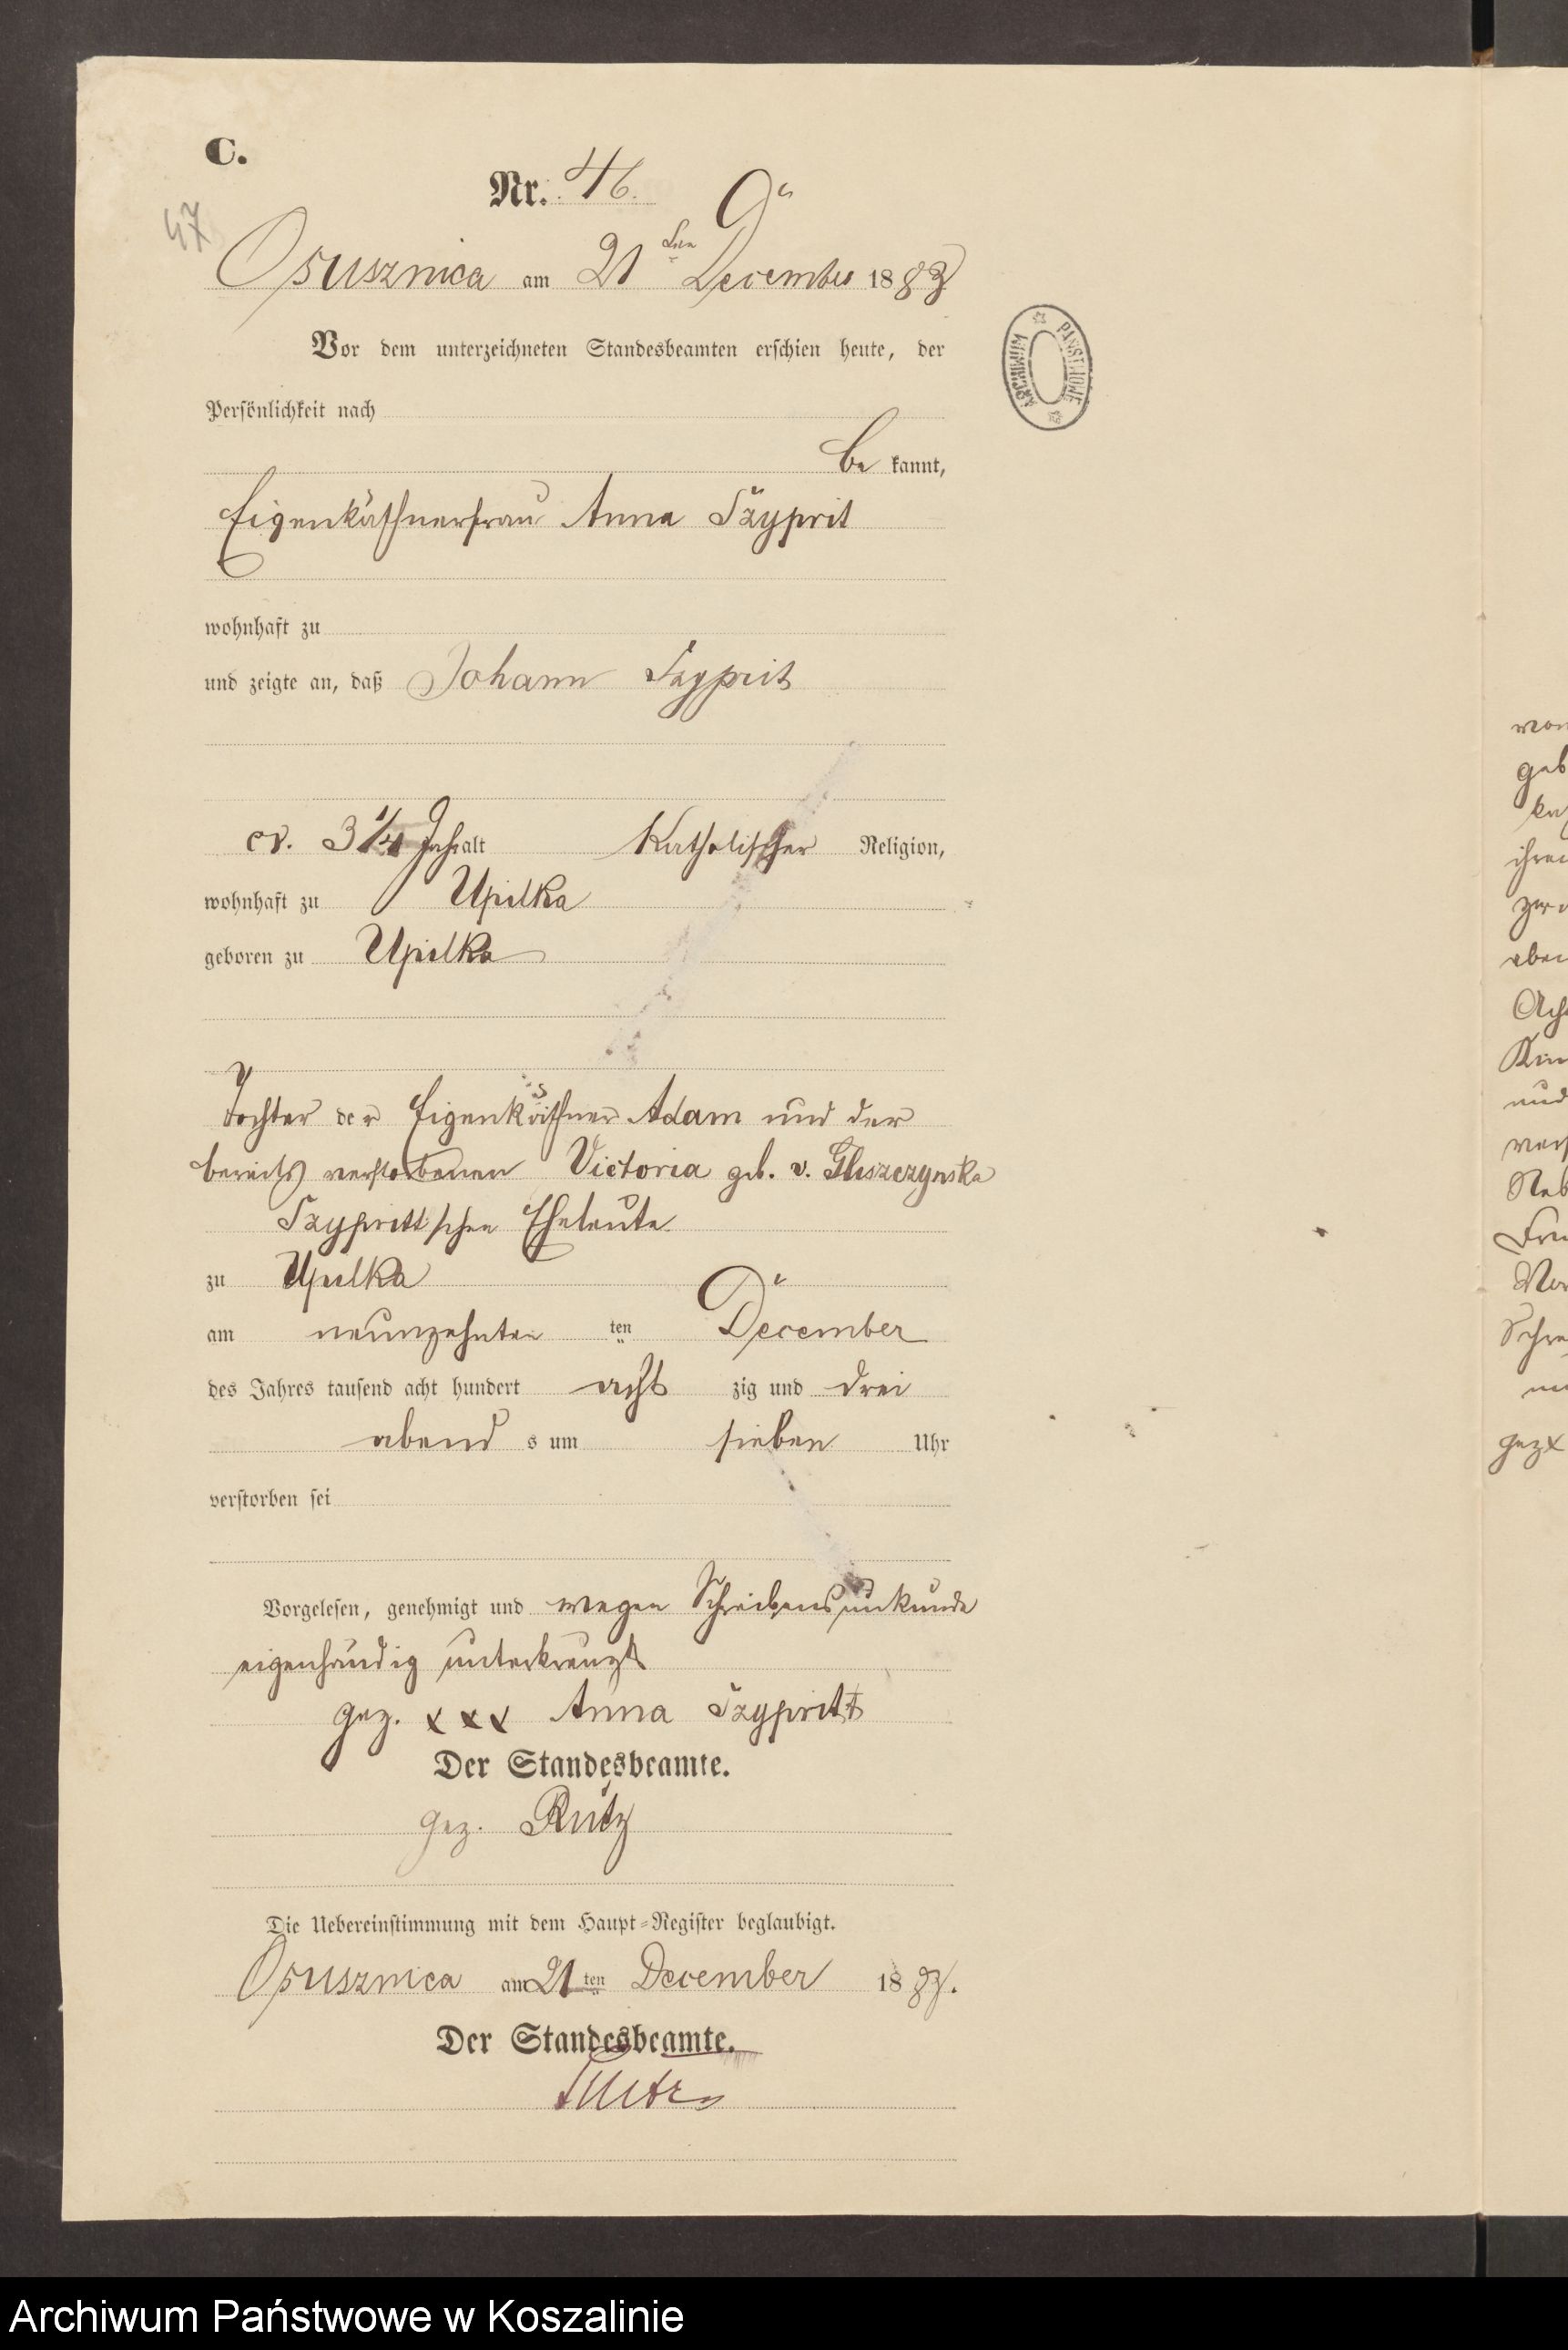 C.
Nr. 46.
47
Osusznica am 21 ten December 1883
Vor dem unterzeichneten Standesbeamten erschien heute, der
Persönlichkeit nach
be kannt,
Eigenkäthnerfrau Anna Szyprit
wohnhaft zu
und zeigte an, daß Johann Szyprit
cr. 3 1/4 Jahr alt Katholischer Religion,
wohnhaft zu Upilka
geboren zu Upilka
Tochter der Eigenkäthner Adam und der
bereits verstorbenen Victoria geb. v. Gliszczynska
Szypritt'schen Eheleute
zu Upilka
am neunzehnten ten December
des Jahres tausend acht hundert acht zig und drei
abend s um sieben Uhr
verstorben sei
Vorgelesen, genehmigt und wegen Schreibensunkunde
eigenhändig unterkreuzt
gez. xxx Anna Szypritt
Der Standesbeamte.
gez. Rutz
Die Uebereinstimmung mit dem Haupt-Register beglaubigt.
Osusznica am 21 ten December 1883.
Der Standesbeamte.
Rutz
ARCHIWUM PAŃSTWOWE
Archiwum Państwowe w Koszalinie